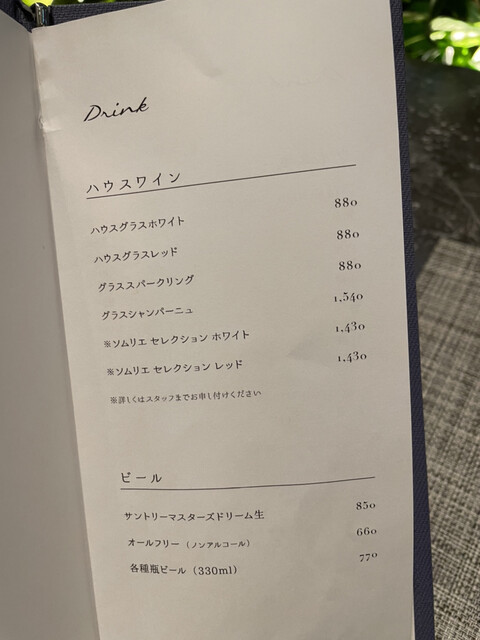 Drink
ハウスワイン
ハウスグラスホワイト 880
ハウスグラスレッド 880
グラススパークリング 880
グラスシャンパーニュ 1,540
※ソムリエ セレクション ホワイト 1,430
※ソムリエ セレクション レッド 1,430
※詳しくはスタッフまでお申し付けください
ビール
サントリーマスターズドリーム生 850
オールフリー（ノンアルコール） 660
各種瓶ビール（330ml） 770